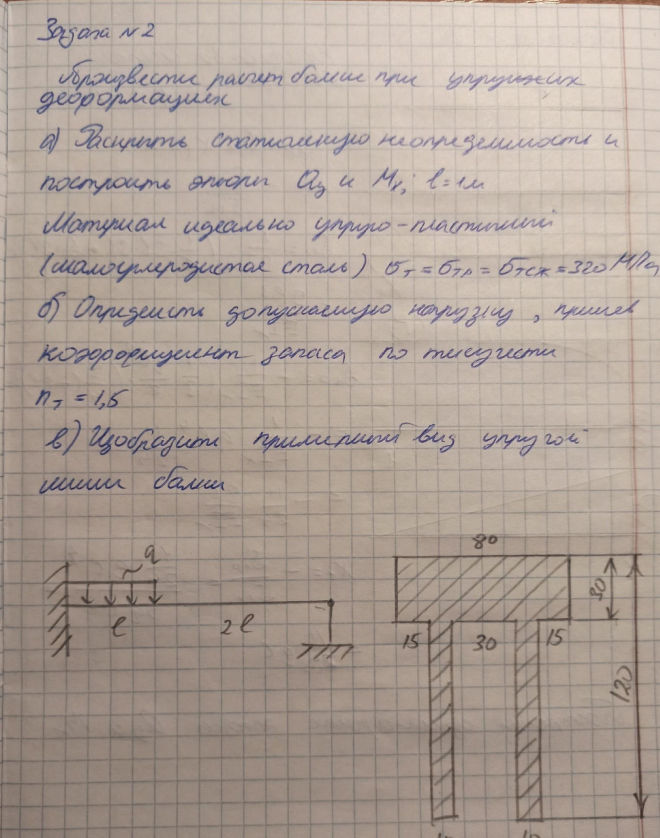 Задача №2
Произвести расчет балки при упругих
деформациях
а) Раскрыть статическую неопределимость и
построить эпюры Qy и Mx; l=1м
Материал идеально упруго-пластичный
(малоуглеродистая сталь) σт = σтр = σтсж = 320 МПа
б) Определить допускаемую нагрузку, приняв
коэффициент запаса по текучести
nт = 1,5
в) Изобразить примерный вид упругой
линии балки
q
l
2l
80
30
15
30
15
120